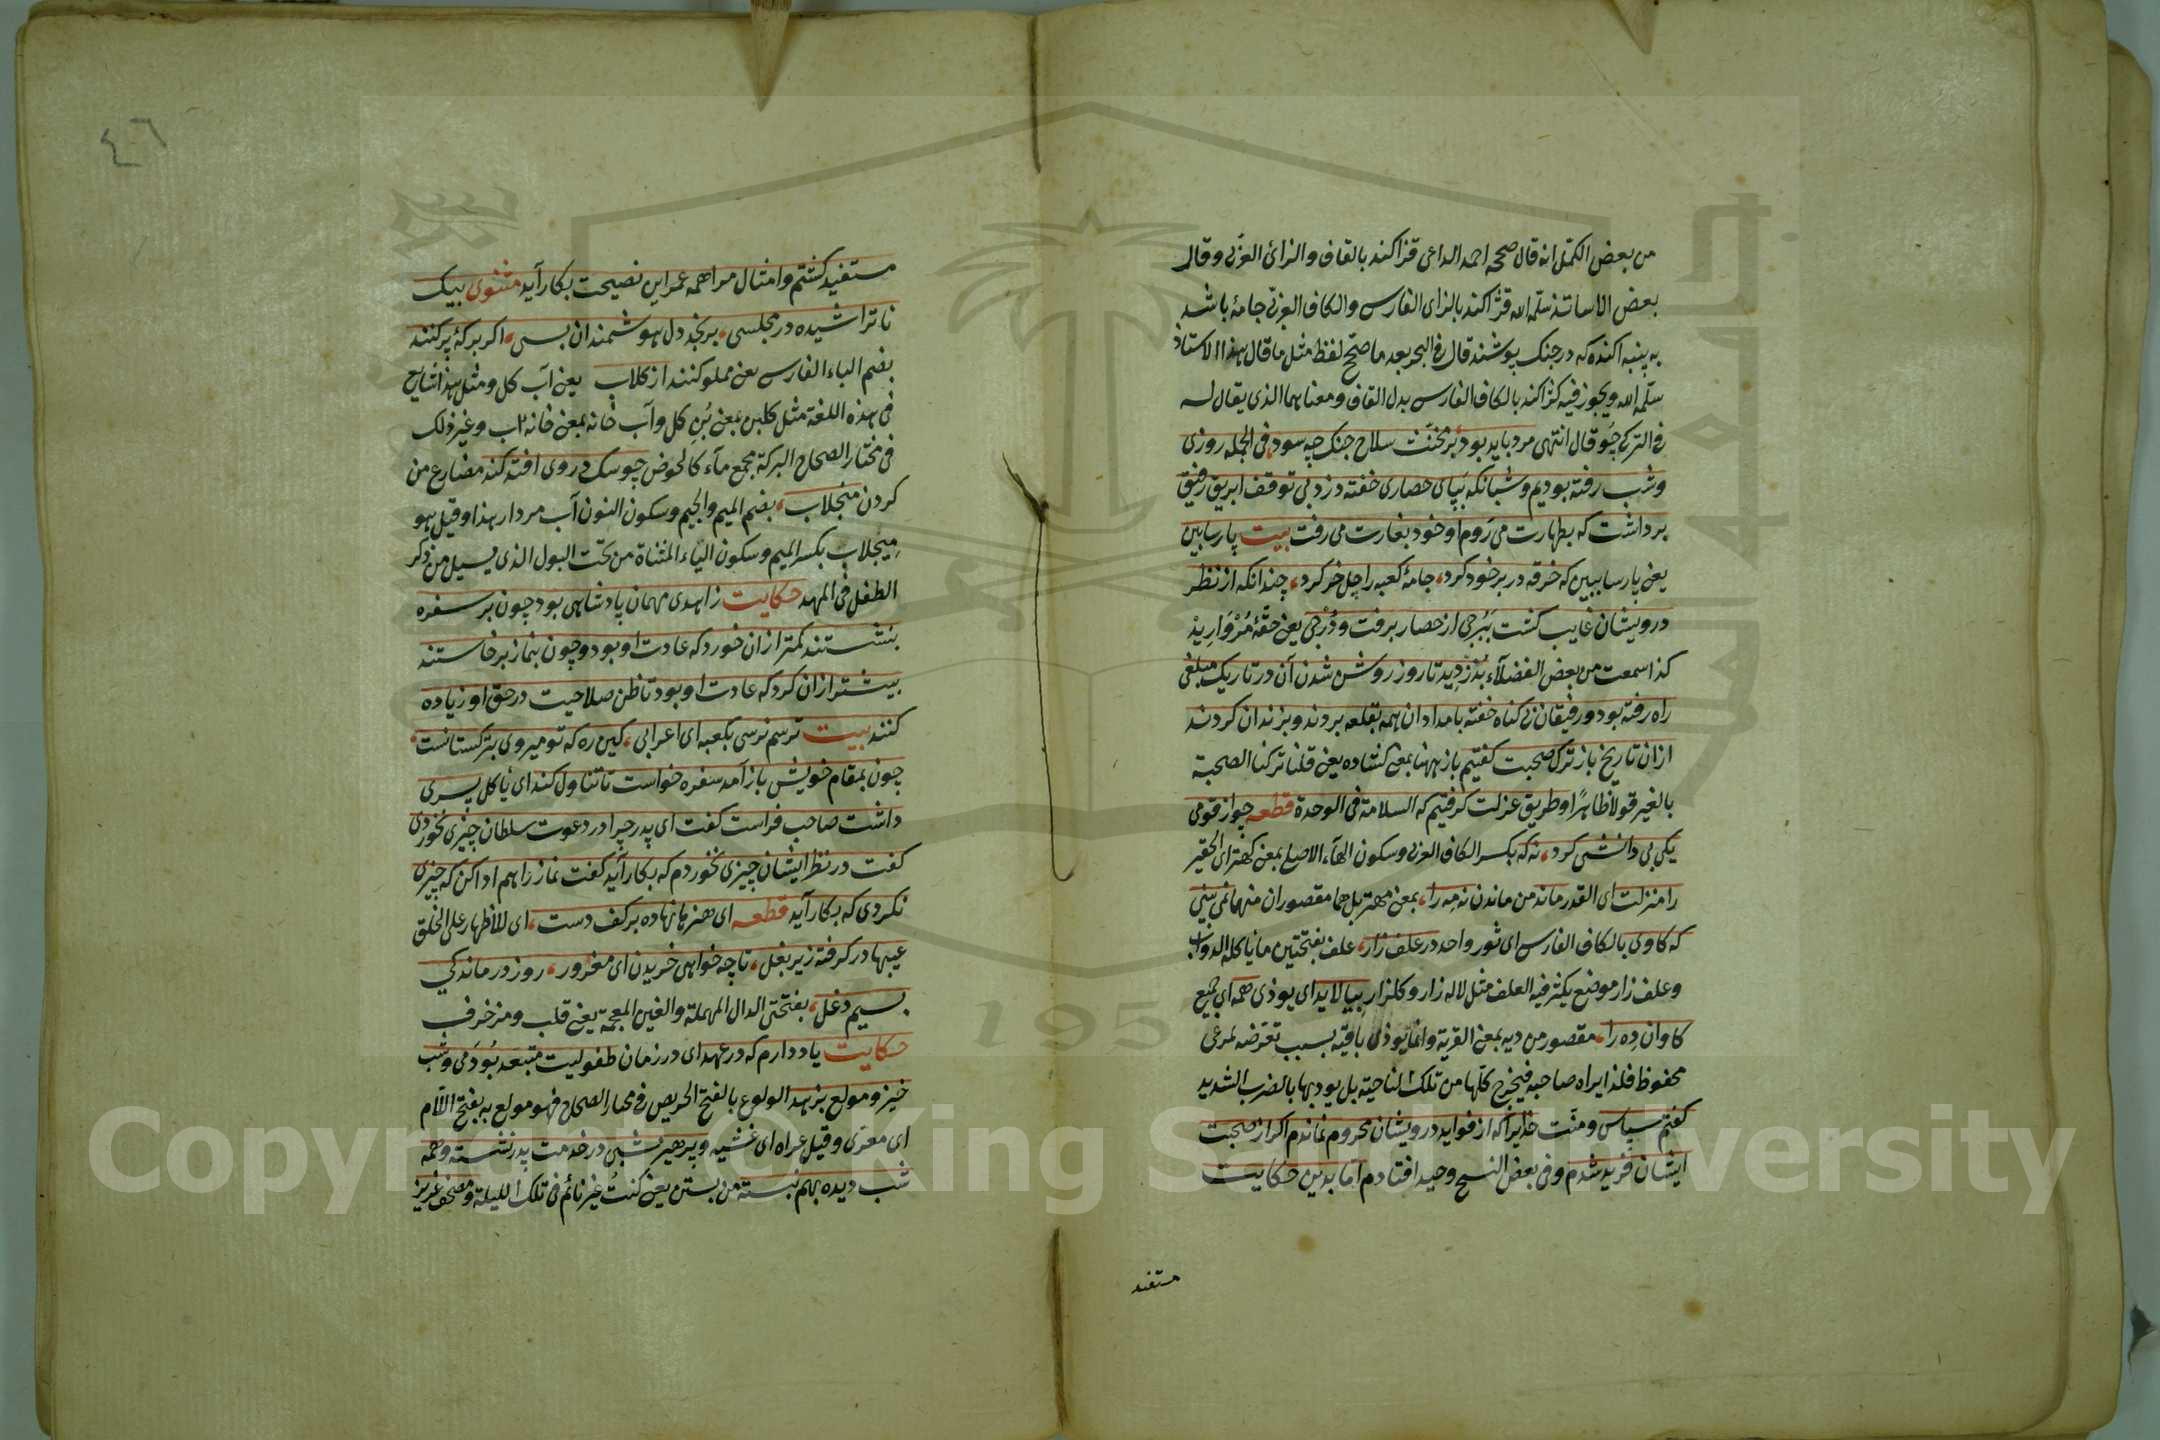 من بعض الكمل انه قال صححه احمد الداعى قزاكند بالقاف والزاى العربى وقال
بعض الاساتذ سلمه الله قژاكند بالزاى الفارسى والكاف العربى جامۀ باشد
به پنبه اكنده كه در جنك پوشند قال فى البحر بعد ما صحح لفظ مثل ما قال هذا الاستاذ
سلمه الله ويجوز فيه كژاكند بالكاف الفارسى بدل القاف ومعناهما الذى يقال له
فى التركى چُو قال انتهى مرد بايد بود بر مخنّث سلاح جنك چه سود فى الجمله روزى
وشب رفته بوديم وشبانكه بپاى حصارى خفته دزد بى توقف ابريق رفيق
برداشت كه بطهارت مى رَوم او خود بغارت مى رفت بيت پارسا بين
يعنى پارسا ببين كه خرقه در بر خود كرد، جامۀ كعبه را جل خر كرد، چندانكه از نظر
درويشان غايب كشت ببرجى از حصار برفت ودُرْجى يعنى حقّۀ مُرْوَارِيدْ
كذا سمعت من بعض الفضلاء بدُزدِيد تا روز روشن شدن آن در تاريك مبلغى
راه رفته بود ورفيقان بى كناه خفته بامدادان همه بقلعه بردند وبزندان كردند
ازان تاريخ باز ترك صحبت كفتيم باز ههنا بمعنى كشاده يعنى قلنا تركنا الصحبة
بالغير قولا ظاهرًا وطريق عزلت كرفتيم كه السلامة فى الوحدة قطعه چو از قومى
يكى بى دانشى كرد، نه كه بكسر الكاف العربى وسكون الهاء الاصلى بمعنى كهتر اى الحقير
را منزلت اى القدر ماند من ماندن نه مِه را، بمعنى مهتر بل هما مقصوران منهما نمى بينى
كه كاوى بالكاف الفارسى اى ثور واحد در علف زار، علف بفتحتين ما ياكله الدواب
وعلف زار موضع يكثر فيه العلف مثل لاله زار وكلزار بيالايد اى يوذى همه اى جميع
كاوان دِه را، مقصور من ديه بمعنى القرية وانما يوذى باقيه بسبب تعرضه لمرعى
محفوظ فلذا يراه صاحبه فيخرج كلّها من تلك الناحية بل يوديها بالضرب الشديد
كفتم سپاس ومنّت خدايرا كه از فوايد درويشان محروم نماندم اكر از صحبت
ايشان فريد شدم وفى بعض النسخ وحيد افتادم اما بدين حكايت
مستفيد
٤٦
مستفيد كشتم وامثال مرا همه عمر اين نصيحت بكار آيد مثنوى بيك
ناتراشيده در مجلسى، برنجد دل هوشمندان بسى، اكر بركۀ پر كنند
بضم الباء الفارسى يعنى مملو كنند از كلاب يعنى آب كل ومثل هذا شايع
فى هذه اللغة مثل كلبن بمعنى بُنِ كل وآب خانه بمعنى خانۀ اب وغير ذلك
فى مختار الصحاح البركة مجمع ماء كالحوض چو سك در وى افتد كند مضارع من
كردن منجلاب، بضم الميم والجيم وسكون النون آب مردار هذا وقيل هو
مِيْجلاب بكسر الميم وسكون الياء المثناة من تحت البول الذى يسيل من ذكر
الطفل فى المهد حكايت زاهدى مهمان پادشاهى بود چون بر سفره
بنشستند كمتر ازان خورد كه عادت او بود وچون بنماز برخاستند
بيشتر ازان كرد كه عادت او بود تا ظن صلاحيت در حق او زياده
كنند بيت ترسم نرسى بكعبه اى اعرابى، كين ره كه تو ميروى بتركستانست،
چون بمقام خويش باز آمد سفره خواست تا تناول كند اى ياكل پسرى
داشت صاحب فراست كفت اى پدر چرا در دعوت سلطان چيزى نخوردى
كفت در نظر ايشان چيزى نخوردم كه بكار آيد كفت نماز را هم ادا كن كه چيزى
نكردى كه بكار آيد قطعه اى هنرها نهاده بر كف دست، اى للاظهار على الخلق
عيبها در كرفته زير بغل، تا چه خواهى خريدن اى مغرور، روز درماندكى
بسيم دغل، بفتحتى الدال المهملة والغين المعجمة يعنى قلب ومزخرف
حكايت ياد دارم كه در عهد اى در زمان طفوليت متعبد بودمى وشب
خيز ومولع بزهد الولوع بالفتح الحريص فى مختار الصحاح فهو مولع به بفتح اللام
اى مغرى وقيل عراه اى غشيه وپرهيز شبى در خدمت پدر نشسته وهمه
شب ديده بهم نبسته من بستن يعنى كنتُ غير نائم فى تلك الليلة ومصحف عزيز
Copyright © King Saud University
195